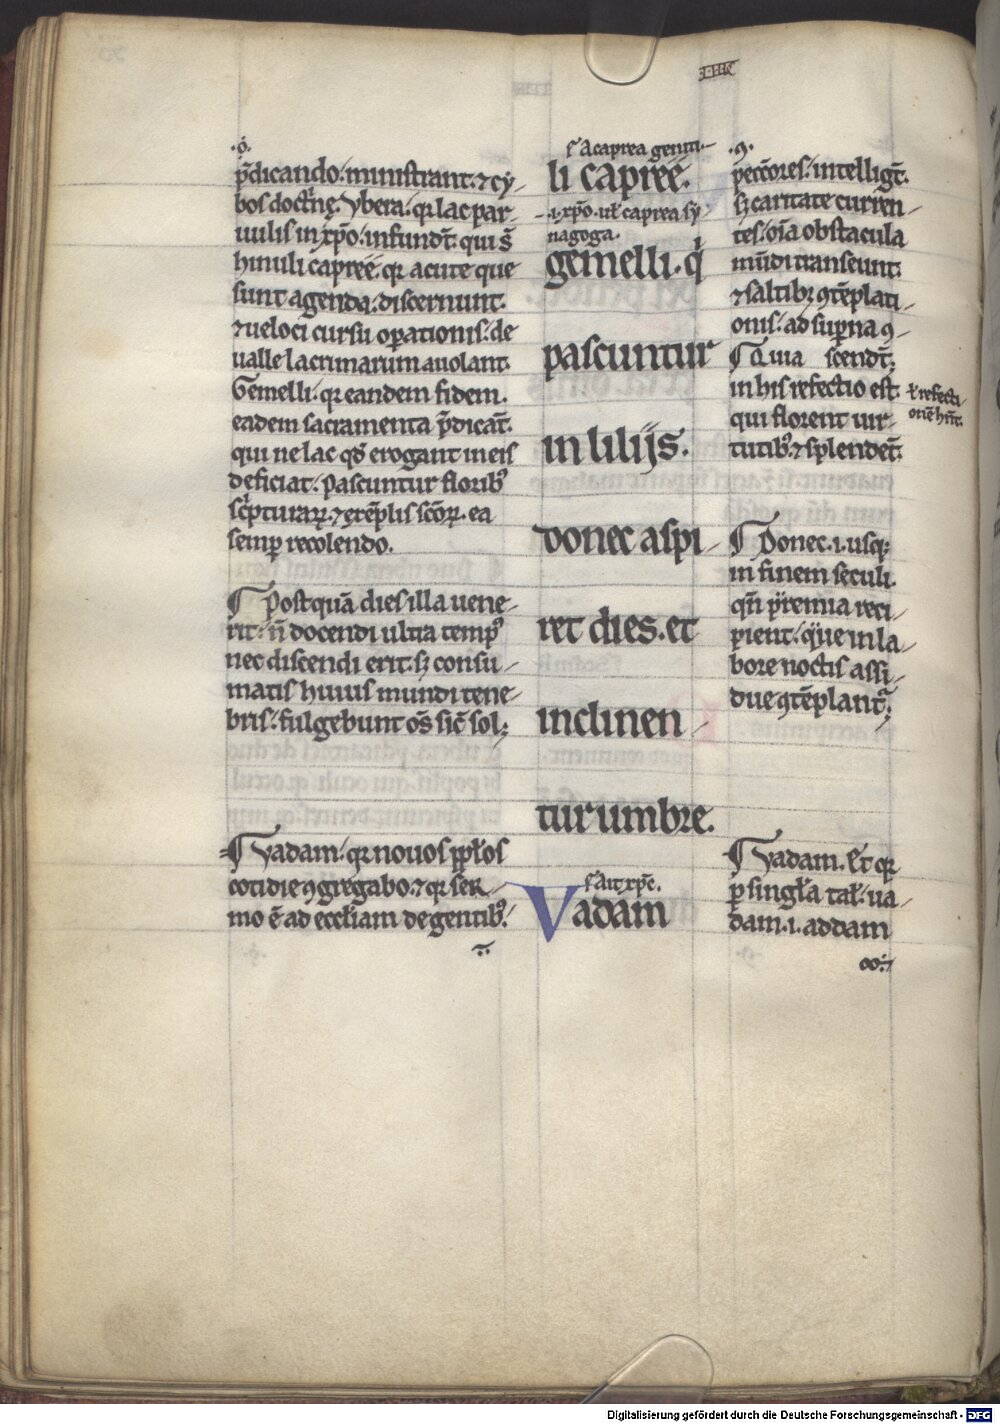 ·IIII·
·o·
p̄dicando: ministrant. ⁊ cy-
bos doct̄nę. Vbera: qꝛ lac par-
uulis in xp̄o: infundt̄: qui st̄
hinuli capree: qꝛ acute que
sunt agenda: discernunt.
⁊ ueloci cursu oꝑationis: de
ualle lacrimarum auolant.
Gemelli: qꝛ eandem fidem.
eadem sacramenta p̄dicāt.
qui ne lac qđ erogant in eis
deficiat: pascuntur florib⁹
sc̄pturaꝝ. ⁊ exēplis sc̄oꝝ. ea
semꝑ recolendo.
¶ Postquā dies illa uene-
rit: n̄ docendi ultra temp⁹
nec discendi erit: sꝫ consu-
matis huius mundi tene-
bris: fulgebunt oēs sic̄ sol;
¶ Vadam: qꝛ nouos pp̄los
cotidie ꝯgregabo. ⁊ qꝛ ser-
mo ē ad eccl̄iam de gentib⁹.
s. A caprea genti-
li capree.
-.i. xp̄o. uł caprea sy-
nagoga.
gemelli. q̇
pascuntur
in lilijs.
donec aspi-
ret dies. et
inclinen-
tur umbre.
s. Ait xp̄c.
Vadam
·ꝯ·
peccōres: intelligt̄.
sꝫ caritate curren-
tes: oīa obstacula
mūdi transeunt.
⁊ saltibꝫ ꝯtēplati-
onis: ad suꝑna ꝯ-
¶ Quia scendt̄;
in his refectio est
qui florent uir-
tutib⁹. ⁊ splendet̄.
ł refecti-
onē hn̄t.
¶ Donec .i. usqꝫ
in finem seculi.
qn̄ p̄remia reci-
pient: que in la-
bore noctis assi-
due ꝯtēplant᷑;
¶ Vadam. Et qꝛ
ꝑ singl̄a tał: ua-
dam .i. addam